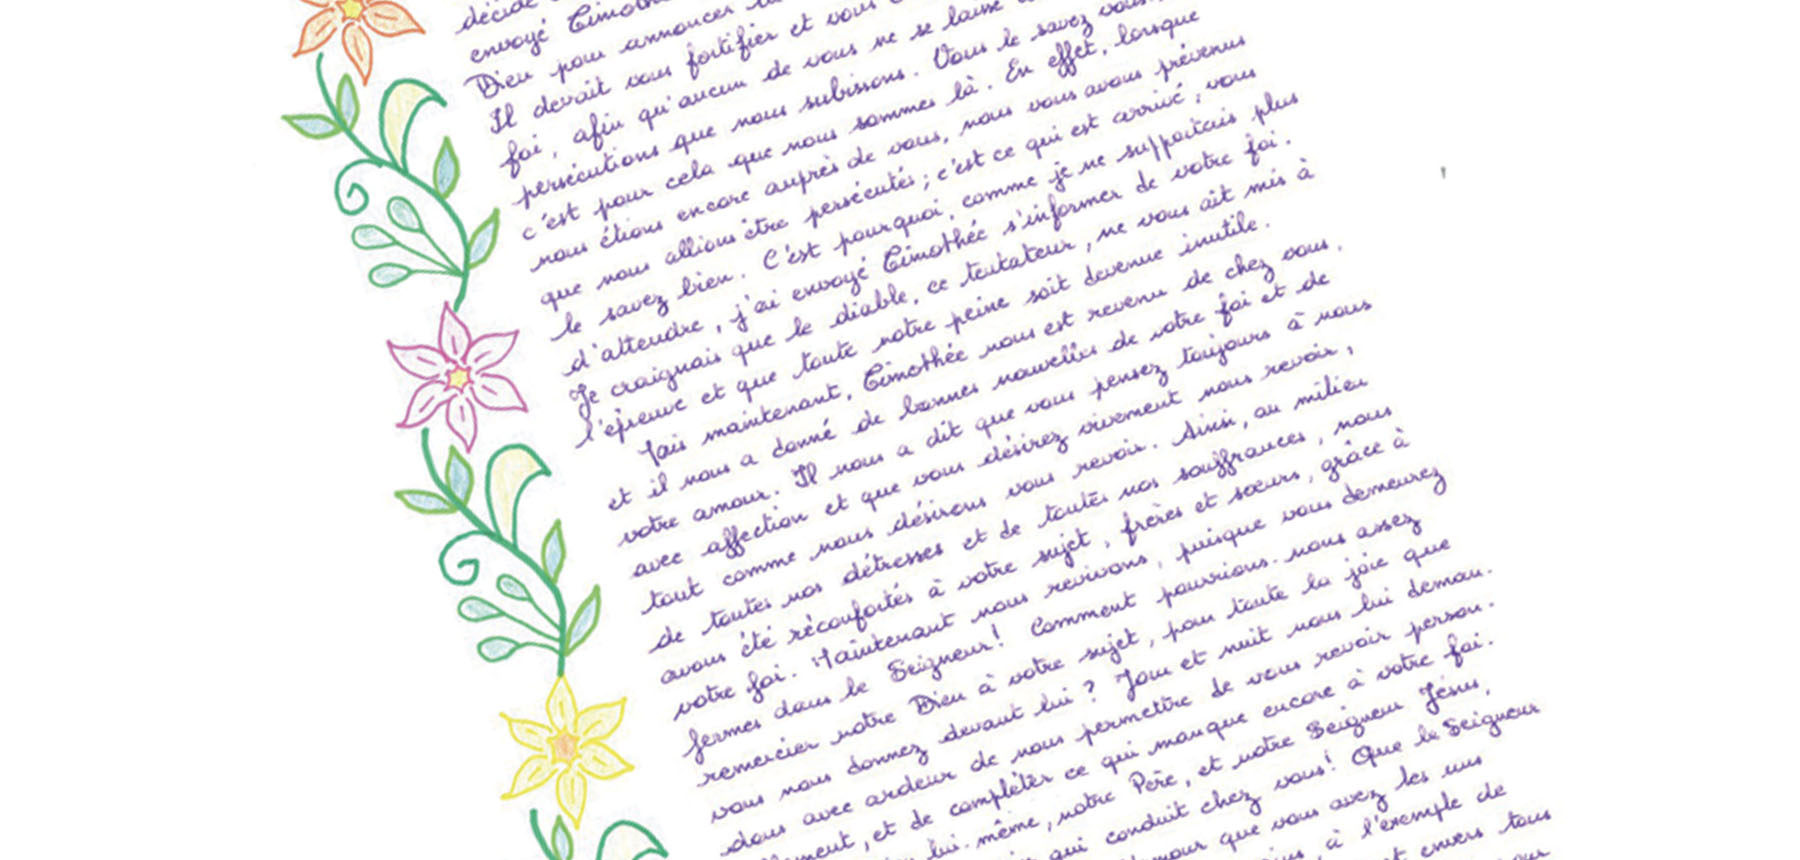 décidé
envoyé
Dieu pour annoncer
Il devait vous fortifier et vous
foi, afin qu'aucun de vous ne se laisse
persécutions que nous subissons. Vous le savez vous
c'est pour cela que nous sommes là. En effet, lorsque
nous étions encore auprès de vous, nous vous avons prévenus
que nous allions être persécutés ; c'est ce qui est arrivé, vous
le savez bien. C'est pourquoi, comme je ne supportais plus
d'attendre, j'ai envoyé Timothée s'informer de votre foi.
Je craignais que le diable, ce tentateur, ne vous ait mis à
l'épreuve et que toute notre peine soit devenue inutile.
Mais maintenant, Timothée nous est revenu de chez vous,
et il nous a donné de bonnes nouvelles de votre foi et de
votre amour. Il nous a dit que vous pensez toujours à nous
avec affection et que vous désirez vivement nous revoir,
tout comme nous désirons vous revoir. Ainsi, au milieu
de toutes nos détresses et de toutes nos souffrances, nous
avons été réconfortés à votre sujet, frères et sœurs, grâce à
votre foi. Maintenant nous revivons, puisque vous demeurez
fermes dans le Seigneur! Comment pourrions-nous assez
remercier notre Dieu à votre sujet, pour toute la joie que
vous nous donnez devant lui ? Jour et nuit nous lui deman-
dons avec ardeur de nous permettre de vous revoir person-
ellement, et de compléter ce qui manque encore à votre foi.
lui-même, notre Père, et notre Seigneur Jésus,
qui conduit chez vous! Que le Seigneur
que vous avez les uns
à l'exemple de
envers tous